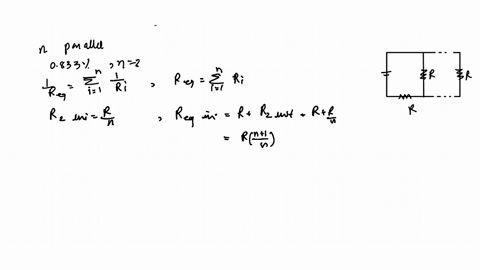 n parallel
0.833%, n=2
1/Req = Σ_{i=1}^{n} 1/Ri , Req = Σ_{i=1}^{n} Ri
R2 ini = R/n , Req ini = R + R2 init = R + R/n
= R(n+1/n)
R R
R